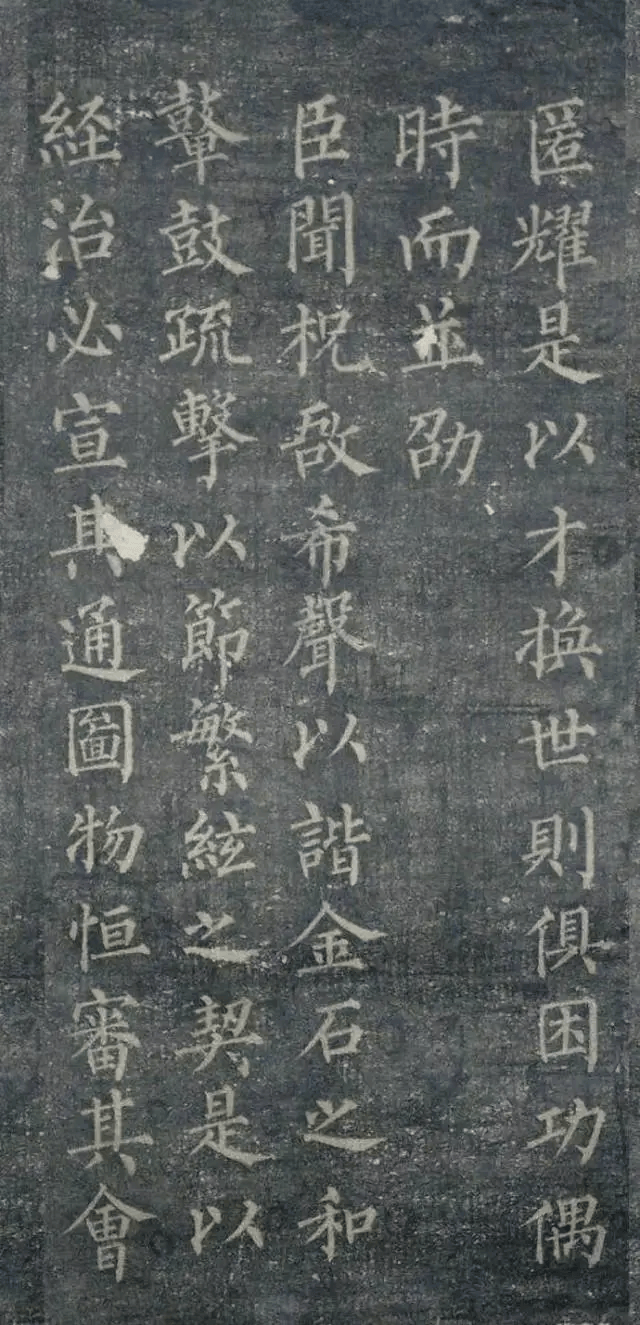 匿耀是以才換世則俱困功偶
時而並劭
臣聞柷敔希聲以諧金石之和
鼙鼓疏擊以節繁絃之契是以
経治必宣其通圖物恒審其會